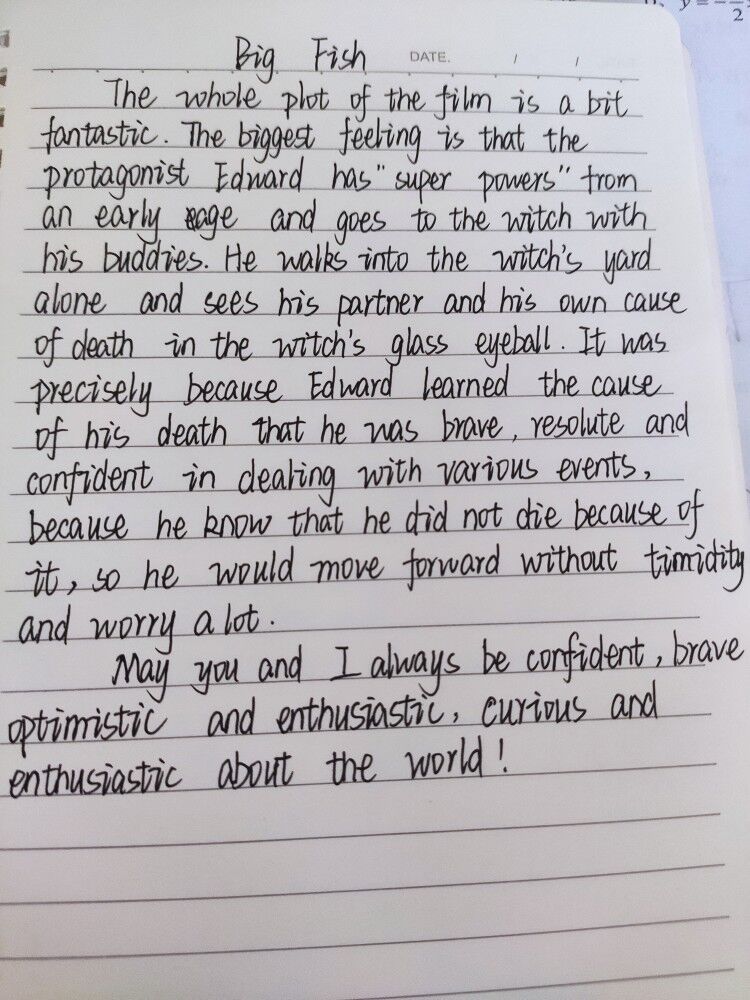 Big Fish DATE. / /
The whole plot of the film is a bit
fantastic. The biggest feeling is that the
protagonist Edward has "super powers" from
an early age and goes to the witch with
his buddies. He walks into the witch's yard
alone and sees his partner and his own cause
of death in the witch's glass eyeball. It was
precisely because Edward learned the cause
of his death that he was brave, resolute and
confident in dealing with various events,
because he know that he did not die because of
it, so he would move forward without timidity
and worry a lot.
May you and I always be confident, brave
optimistic and enthusiastic, curious and
enthusiastic about the world!